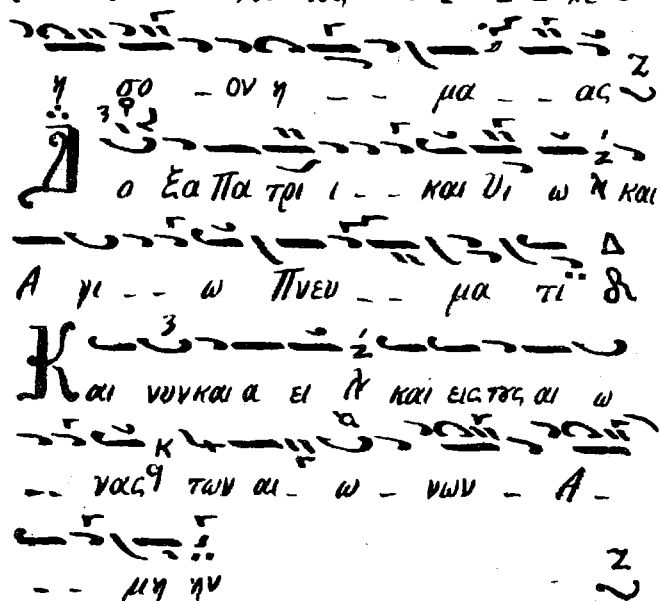 η σο - ον η - - μα - - ας
Δο ξα Πα τρι ι - - και Υι ω και
Α γι - - ω Πνευ - - μα τι
Και νυν και α ει και εις τȣς αι ω
- - νας των αι - ω - νων - Α -
- - μη ην